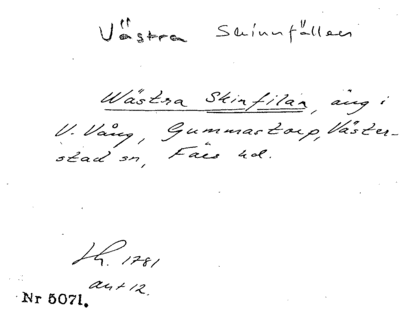 Västra Skinnfällen
Wästra Skinfilan, äng i
V. Vång, Gummastorp, Väster-
stad sn, Färs hd.
Lh. 1781
akt 12.
Nr 5071.